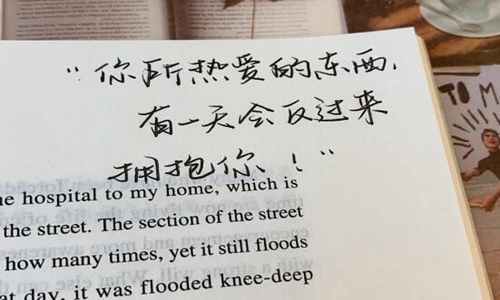 “你所热爱的东西,
有一天会反过来
拥抱你！”
he hospital to my home, which is
the street. The section of the street
how many times, yet it still floods
at day, it was flooded knee-deep
TO M